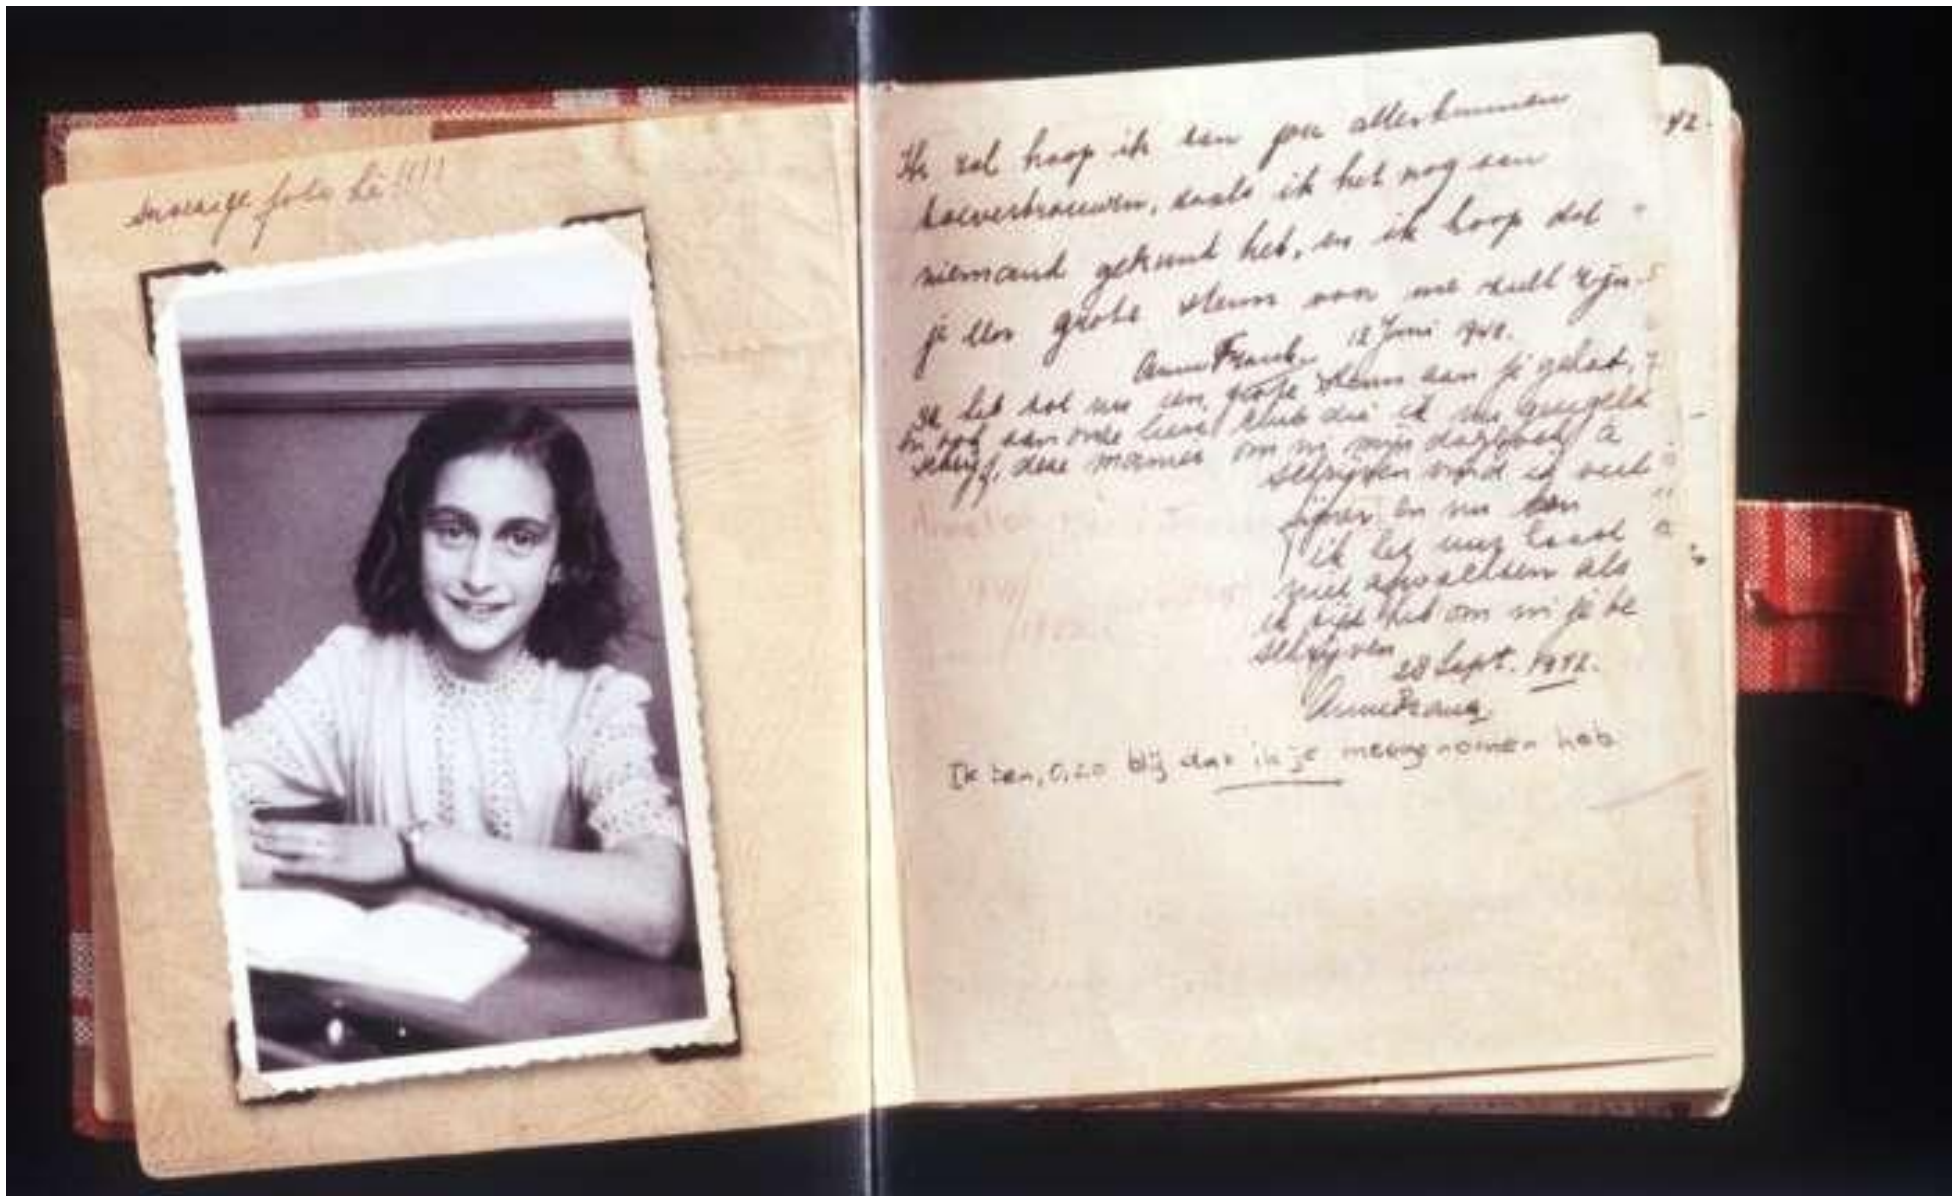 snoezige foto hè!!!!
Ik zal hoop ik aan jou alles kunnen
toevertrouwen, zoals ik het nog aan
niemand gekund heb, en ik hoop dat
je een grote steun van me zult zijn.
Anne Frank. 12 Juni 1942.
Ik heb tot nu een grote steun aan je gehad,
en ook aan onze lieve club die ik nu geregeld
schrijf, deze manier om in mijn dagboek te
schrijven vind ik veel
fijner en nu kan
ik het uur haast
niet afwachten als
ik tijd heb om in je te
schrijven
28 Sept. 1942.
Anne Frank
Ik ben, o, zo blij dat ik je meegenomen heb
42.